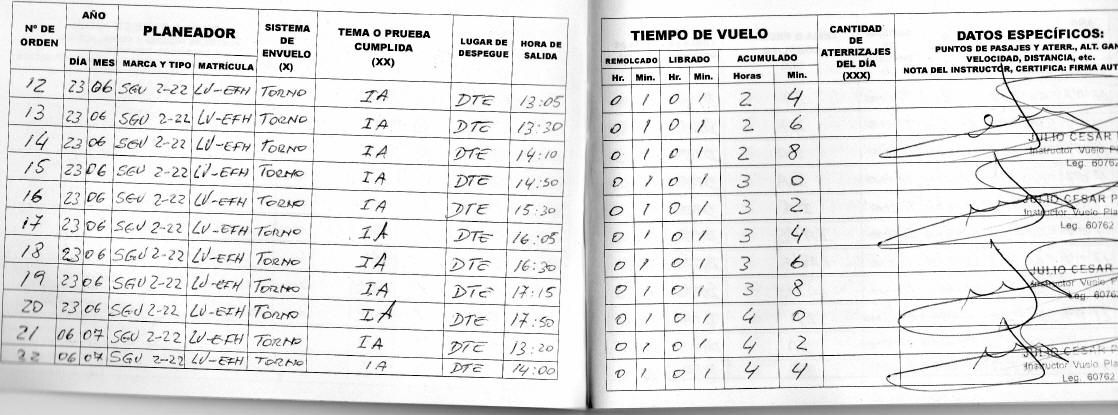 Nº DE ORDEN AÑO PLANEADOR SISTEMA DE ENVUELO (X) TEMA O PRUEBA CUMPLIDA (XX) LUGAR DE DESPEGUE HORA DE SALIDA TIEMPO DE VUELO CANTIDAD DE ATERRIZAJES DEL DÍA (XXX) DATOS ESPECÍFICOS:
PUNTOS DE PASAJES Y ATERR., ALT. GAN
VELOCIDAD, DISTANCIA, etc.
NOTA DEL INSTRUCTOR, CERTIFICA: FIRMA AUT
DÍA MES MARCA Y TIPO MATRÍCULA REMOLCADO LIBRADO ACUMULADO
Hr. Min. Hr. Min. Horas Min.
12 23 06 SGU 2-22 LV-EFH TORNO IA DTE 13:05 0 1 0 1 2 4
13 23 06 SGU 2-22 LV-EFH TORNO IA DTE 13:30 0 1 0 1 2 6
14 23 06 SGU 2-22 LV-EFH TORNO IA DTE 14:10 0 1 0 1 2 8
JULIO CESAR
Instructor Vuelo P
Leg. 60762
15 23 06 SGU 2-22 LV-EFH TORNO IA DTE 14:50 0 1 0 1 3 0
16 23 06 SGU 2-22 LV-EFH TORNO IA DTE 15:30 0 1 0 1 3 2
JULIO CESAR P
Instructor Vuelo Pla
Leg. 60762
17 23 06 SGU 2-22 LV-EFH TORNO IA DTE 16:05 0 1 0 1 3 4
18 23 06 SGU 2-22 LV-EFH TORNO IA DTE 16:30 0 1 0 1 3 6
JULIO CESAR
Instructor Vuelo Pla
Leg. 6076
19 23 06 SGU 2-22 LV-EFH TORNO IA DTE 17:15 0 1 0 1 3 8
20 23 06 SGU 2-22 LV-EFH TORNO IA DTE 17:50 0 1 0 1 4 0
21 06 07 SGU 2-22 LV-EFH TORNO IA DTE 13:20 0 1 0 1 4 2
22 06 07 SGU 2-22 LV-EFH TORNO IA DTE 14:00 0 1 0 1 4 4
JULIO CESAR P
Instructor Vuelo Pla
Leg. 60762